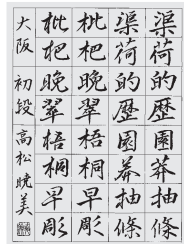 渠荷的歴園莽抽條
渠荷的歴園莽抽條
枇杷晩翠梧桐早彫
枇杷晩翠梧桐早彫
大阪 初段 高松曉美